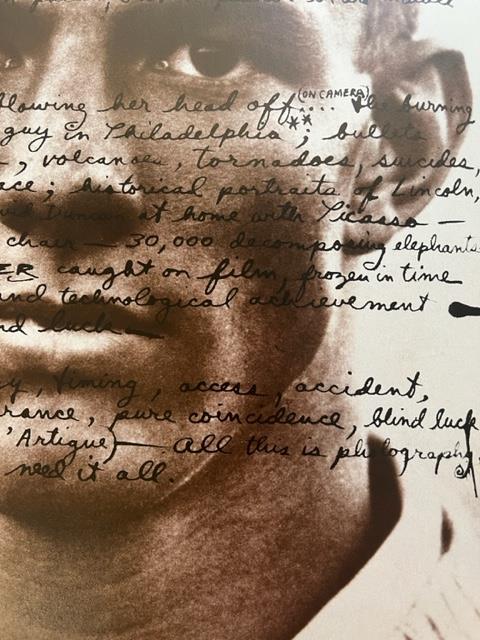 blowing her head off.... (ON CAMERA) the burning
guy in Philadelphia **; bullets
, volcanoes, tornadoes, suicides,
ace; historical portraits of Lincoln,
vid Duncan at home with Picasso —
chair — 30,000 decomposing elephants
ER caught on film, frozen in time
and technological achievement —
nd luck —
y, timing, access, accident,
rance, pure coincidence, blind luck
'Artigue) — All this is photography.
need it all.